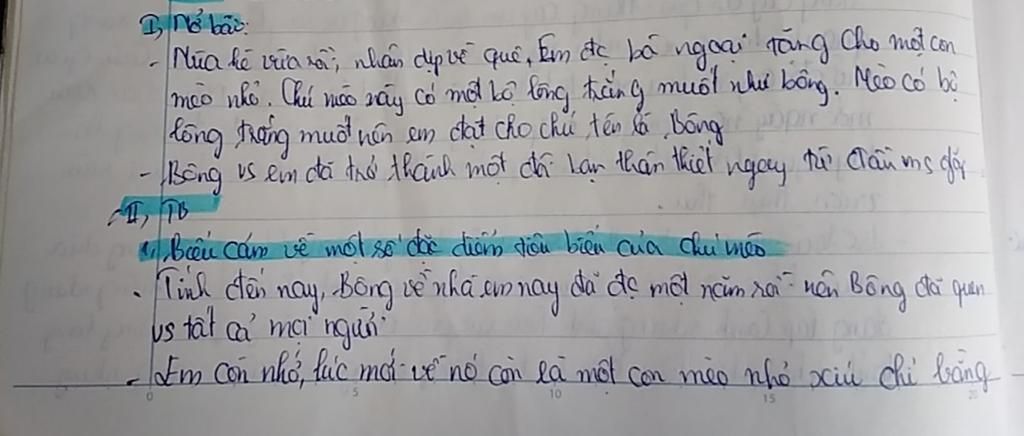 I, Mở bài:
- Mùa hè vừa rồi, nhân dịp về quê, Em đc bà ngoại tặng cho một con
mèo nhỏ. Chú mèo này có một bộ lông trắng muốt như bông. Mèo có bộ
lông trắng muốt nên em đặt cho chú tên là Bông
- Bông vs em đã trở thành một đôi bạn thân thiết ngay từ lần đầu ms gặp
II, TB
1, Biểu cảm về một số đặc điểm tiêu biểu của chú mèo
- Tính đến nay, Bông về nhà em nay đã đc một năm rồi nên Bông đã quen
vs tất cả mọi người
- Em còn nhớ, lúc mới về nó còn là một con mèo nhỏ xíu chỉ bằng
0 5 10 15 20